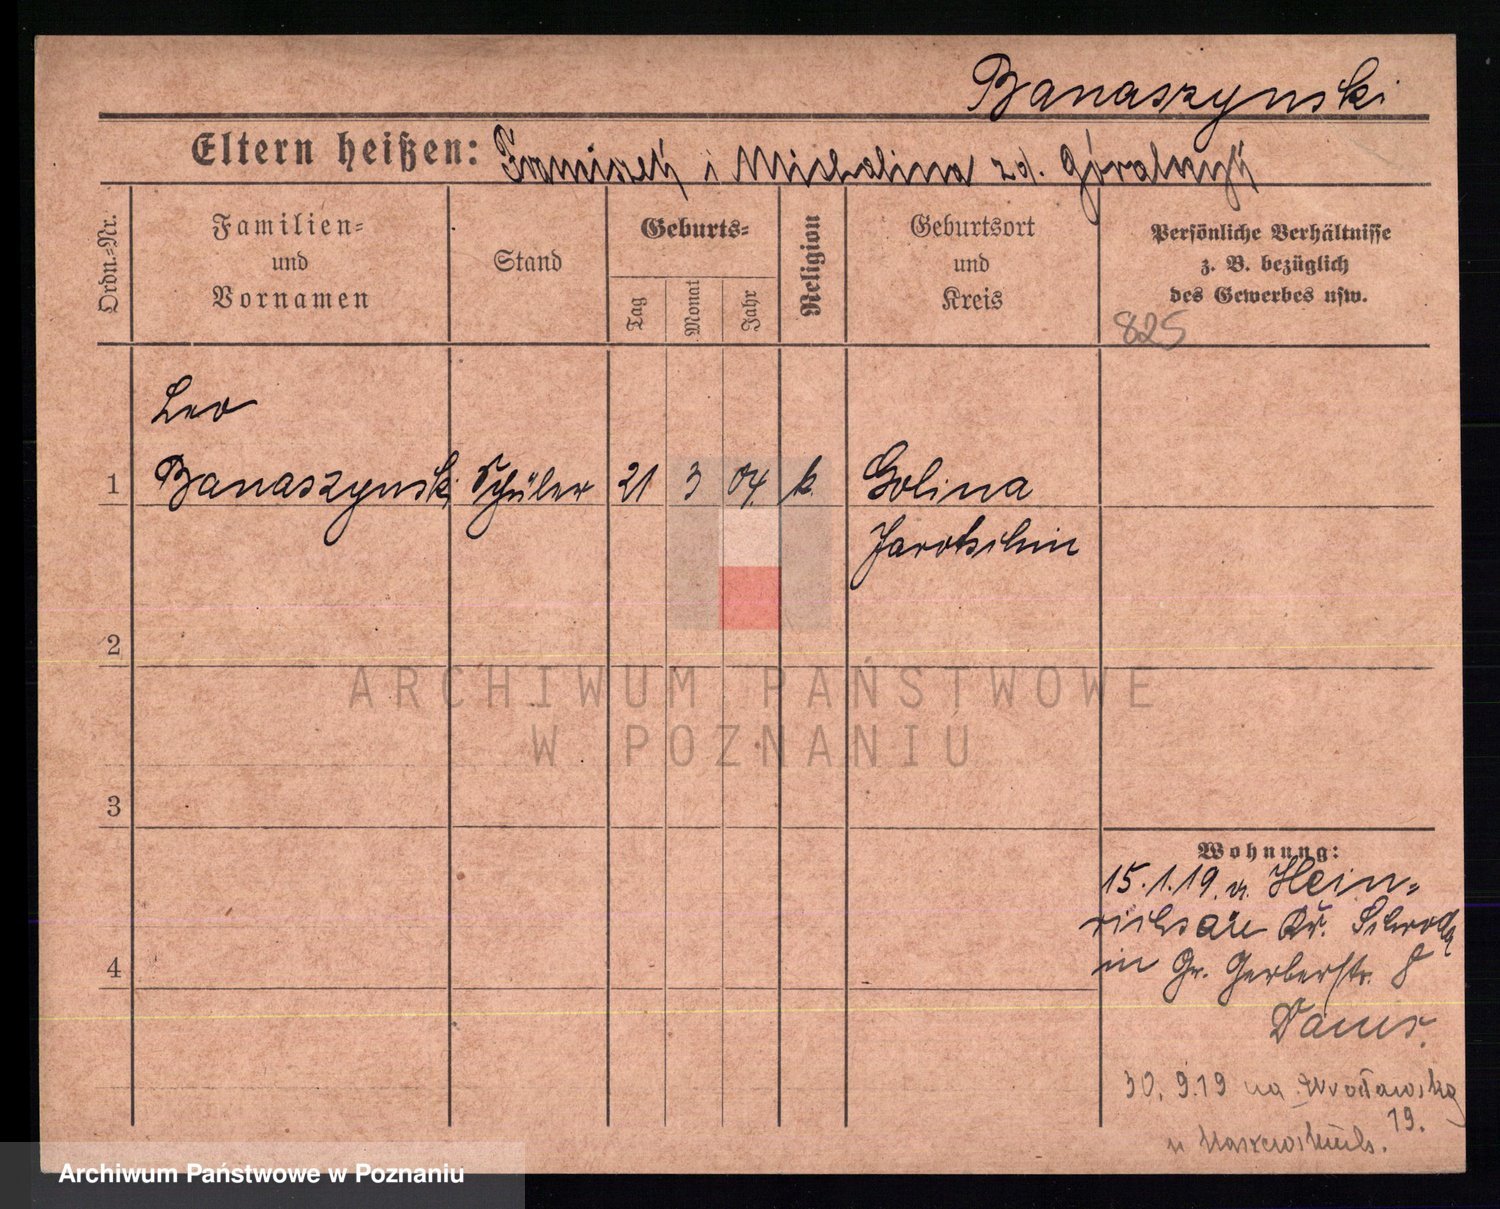 Banaszynski
Eltern heißen: Franciszek i Michalina zd. Góralczyk
Ordn.-Nr.
Familien-
und
Vornamen
Stand
Geburts-
Tag
Monat
Jahr
Religion
Geburtsort
und
Kreis
Persönliche Verhältnisse
z. B. bezüglich
des Gewerbes usw.
825
Leo
1 Banaszynski Schüler 21 3 04 k. Golina
Jarotschin
2
ARCHIWUM PAŃSTWOWE
W POZNANIU
3
Wohnung:
15.1.19. v. Hein-
Kr. Schroda
in Gr. Gerberstr. 8
4
30.9.19 na Wrocławską
19.
u
Archiwum Państwowe w Poznaniu